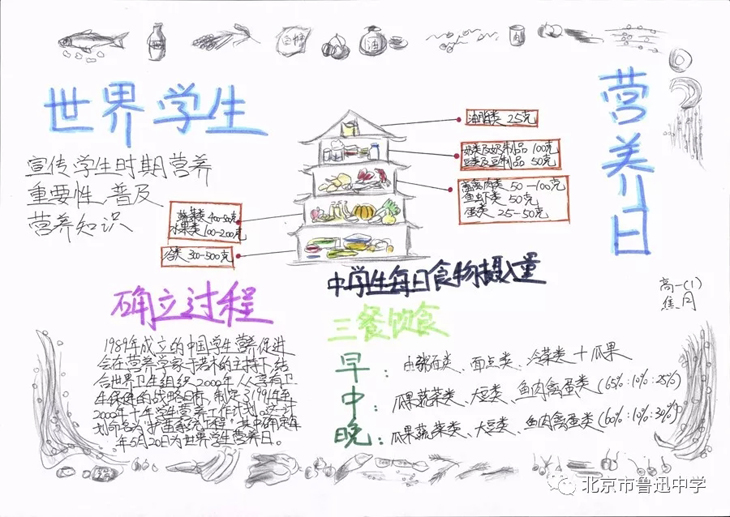 世界学生
营养日
宣传学生时期营养
重要性、普及
营养知识
油脂类 25克
奶类及奶制品 100克
豆类及豆制品 50克
畜禽肉类 50-100克
鱼虾类 50克
蛋类 25-50克
蔬菜类 400-500克
水果类 100-200克
谷类 300-500克
中学生每日食物摄入量
高一(1)
焦 月
确立过程
1989年成立的中国学生营养促进
会在营养学家于若木的主持下,结
合世界卫生组织2000年人人享有卫
生保健的战略目标,制定了1991年
2000年十年学生营养工作计划。这一计
年5月20日为世界学生营养日。
三餐饮食
早:由粥面类、面点类、冷菜类+瓜果
中:瓜果蔬菜类、大豆类、鱼肉禽蛋类(65%:10%:25%)
晚:瓜果蔬菜类、大豆类、鱼肉禽蛋类(60%:10%:30%)
油
北京市鲁迅中学